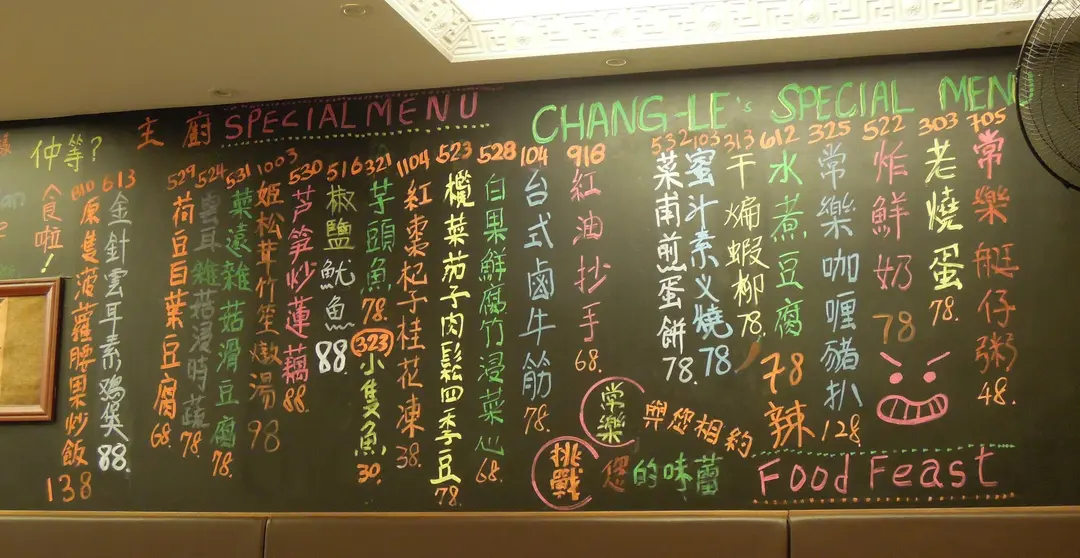 仲等?
食啦!
主廚 SPECIAL MENU
CHANG-LE's SPECIAL MENU
810 原隻菠蘿腰果炒飯 138
613 金針雲耳素鴻煲 88.
529 荷豆百葉豆腐 68.
524 雲耳雜菇浸時蔬 78
531 菜遠雜菇滑豆腐 78.
1003 姬松茸竹笙燉湯 98
530 芦笋炒蓮藕 88.
516 椒鹽魷魚 88
321 芋頭魚 78.
323 小隻魚 30.
1104 紅棗杞子桂花凍 38.
523 欖菜茄子肉鬆四季豆 78.
528 白果鮮腐竹浸菜心 68.
104 台式鹵牛筋 78.
916 紅油抄手 68.
532 菜甫煎蛋餅 78.
103 蜜汁素义燒 78
313 干煸蝦柳 78.
612 水煮豆腐 78 辣
325 常樂咖喱豬扒 128
522 炸鮮奶 78
303 老燒蛋 78.
705 常樂艇仔粥 48.
常樂 與您相約
挑戰 您的味蕾
Food Feast